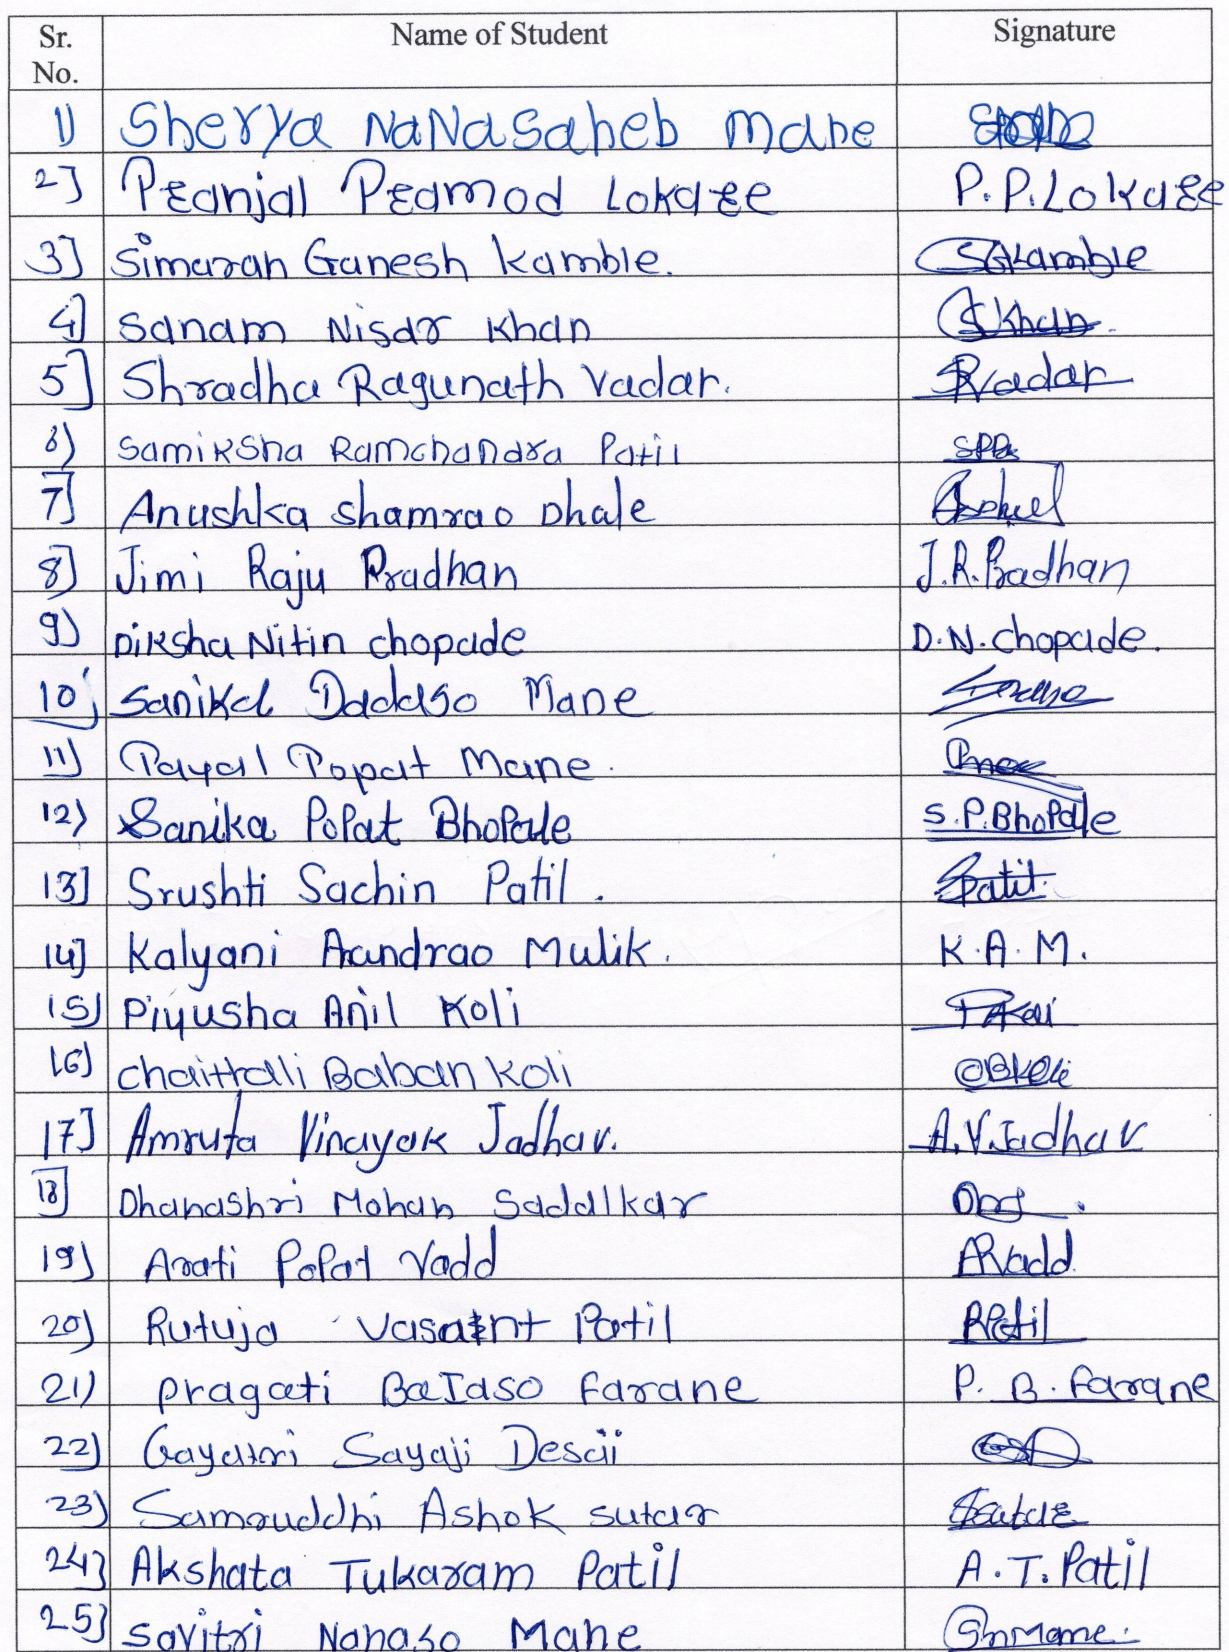 Sr. No. Name of Student Signature
1) Sherya NaNasaheb Mane
2] Pranjal Pramod Lokare P.P.Lokare
3] Simaran Ganesh Kamble. SGKamble
4] Sanam Nisar Khan SKhan.
5] Shradha Ragunath Vadar. SRVadar
6) Samiksha Ramchandra Patil
7] Anushka Shamrao Dhale
8] Jimi Raju Pradhan J.R.Pradhan
9) Diksha Nitin chopade D.N.chopade.
10) Sanika Dadaso Mane
11) Payal Popat Mane.
12) Sanika Popat Bhopale S.P.Bhopale
13] Srushti Sachin Patil. SPatil.
14] Kalyani Aandrao Mulik. K.A.M.
15) Piyusha Anil Koli PAKoli
16) chaittali Baban Koli CBKoli
17] Amruta Vinayak Jadhav. A.V.Jadhav
18] Dhanashri Mohan Sadalkar
19) Arati Popat Vadd APVadd
20) Rutuja Vasant Patil RPatil
21) Pragati BaIaso farane P. B. farane
22) Gayatri Sayaji Desai
23) Samruddhi Ashok sutar Asutar
24] Akshata Tukaram Patil A.T.Patil
25] Savitri Nanaso Mane SnMane.